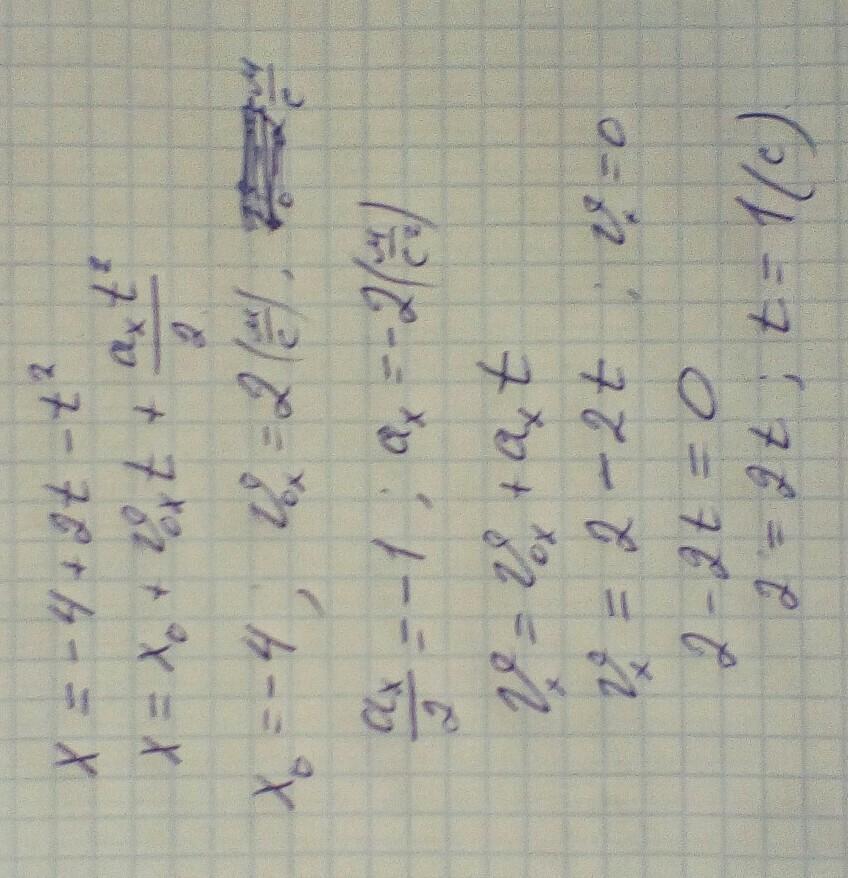 x = -4 + 2t - t²
x = x₀ + v₀ₓt + aₓt²/2
x₀ = -4, v₀ₓ = 2(м/с),
aₓ/2 = -1; aₓ = -2(м/с²)
vₓ = v₀ₓ + aₓt
vₓ = 2 - 2t; vₓ = 0
2 - 2t = 0
2 = 2t; t = 1(с)